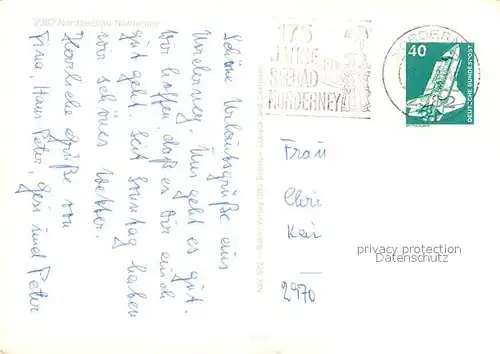 2982 Nordseebad Norderney
Schöne Urlaubsgrüße aus
Norderney. Uns geht es gut.
Wir hoffen, daß es Dir auch
gut geht. Seit Sonntag haben
wir schönes Wetter.
Herzliche Grüße von
Hans Peter, und Peter
175
JAHRE
SEEBAD
NORDERNEY
NORDERN
40
DEUTSCHE BUNDESPOST
Frau
Chris
Kai
2970
privacy protection
Datenschutz